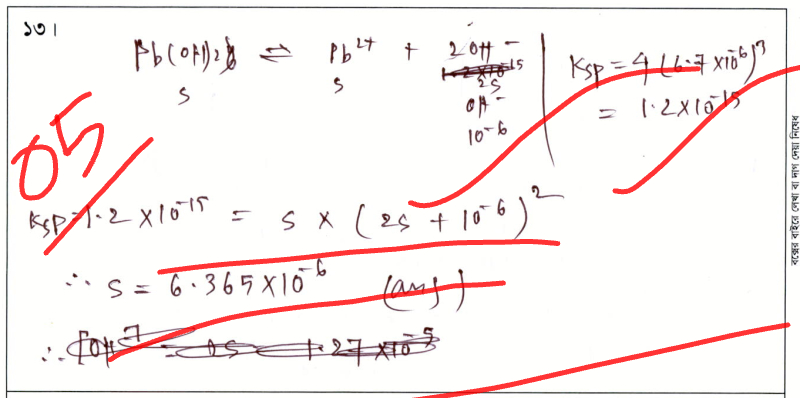 ১৩।
Pb(OH)2 ⇌ Pb2+ + 2OH-
s s 2s
OH-
10-6
Ksp = 4 (6.7 ×10-6)3
= 1.2×10-15
05
Ksp = 1.2 ×10-15 = s × (2s + 10-6)2
∴ s = 6.365×10-6 (ans)
∴ [OH-] = 2s = 1.27 ×10-5
বক্সের বাইরে লেখা বা দাগ দেয়া নিষেধ